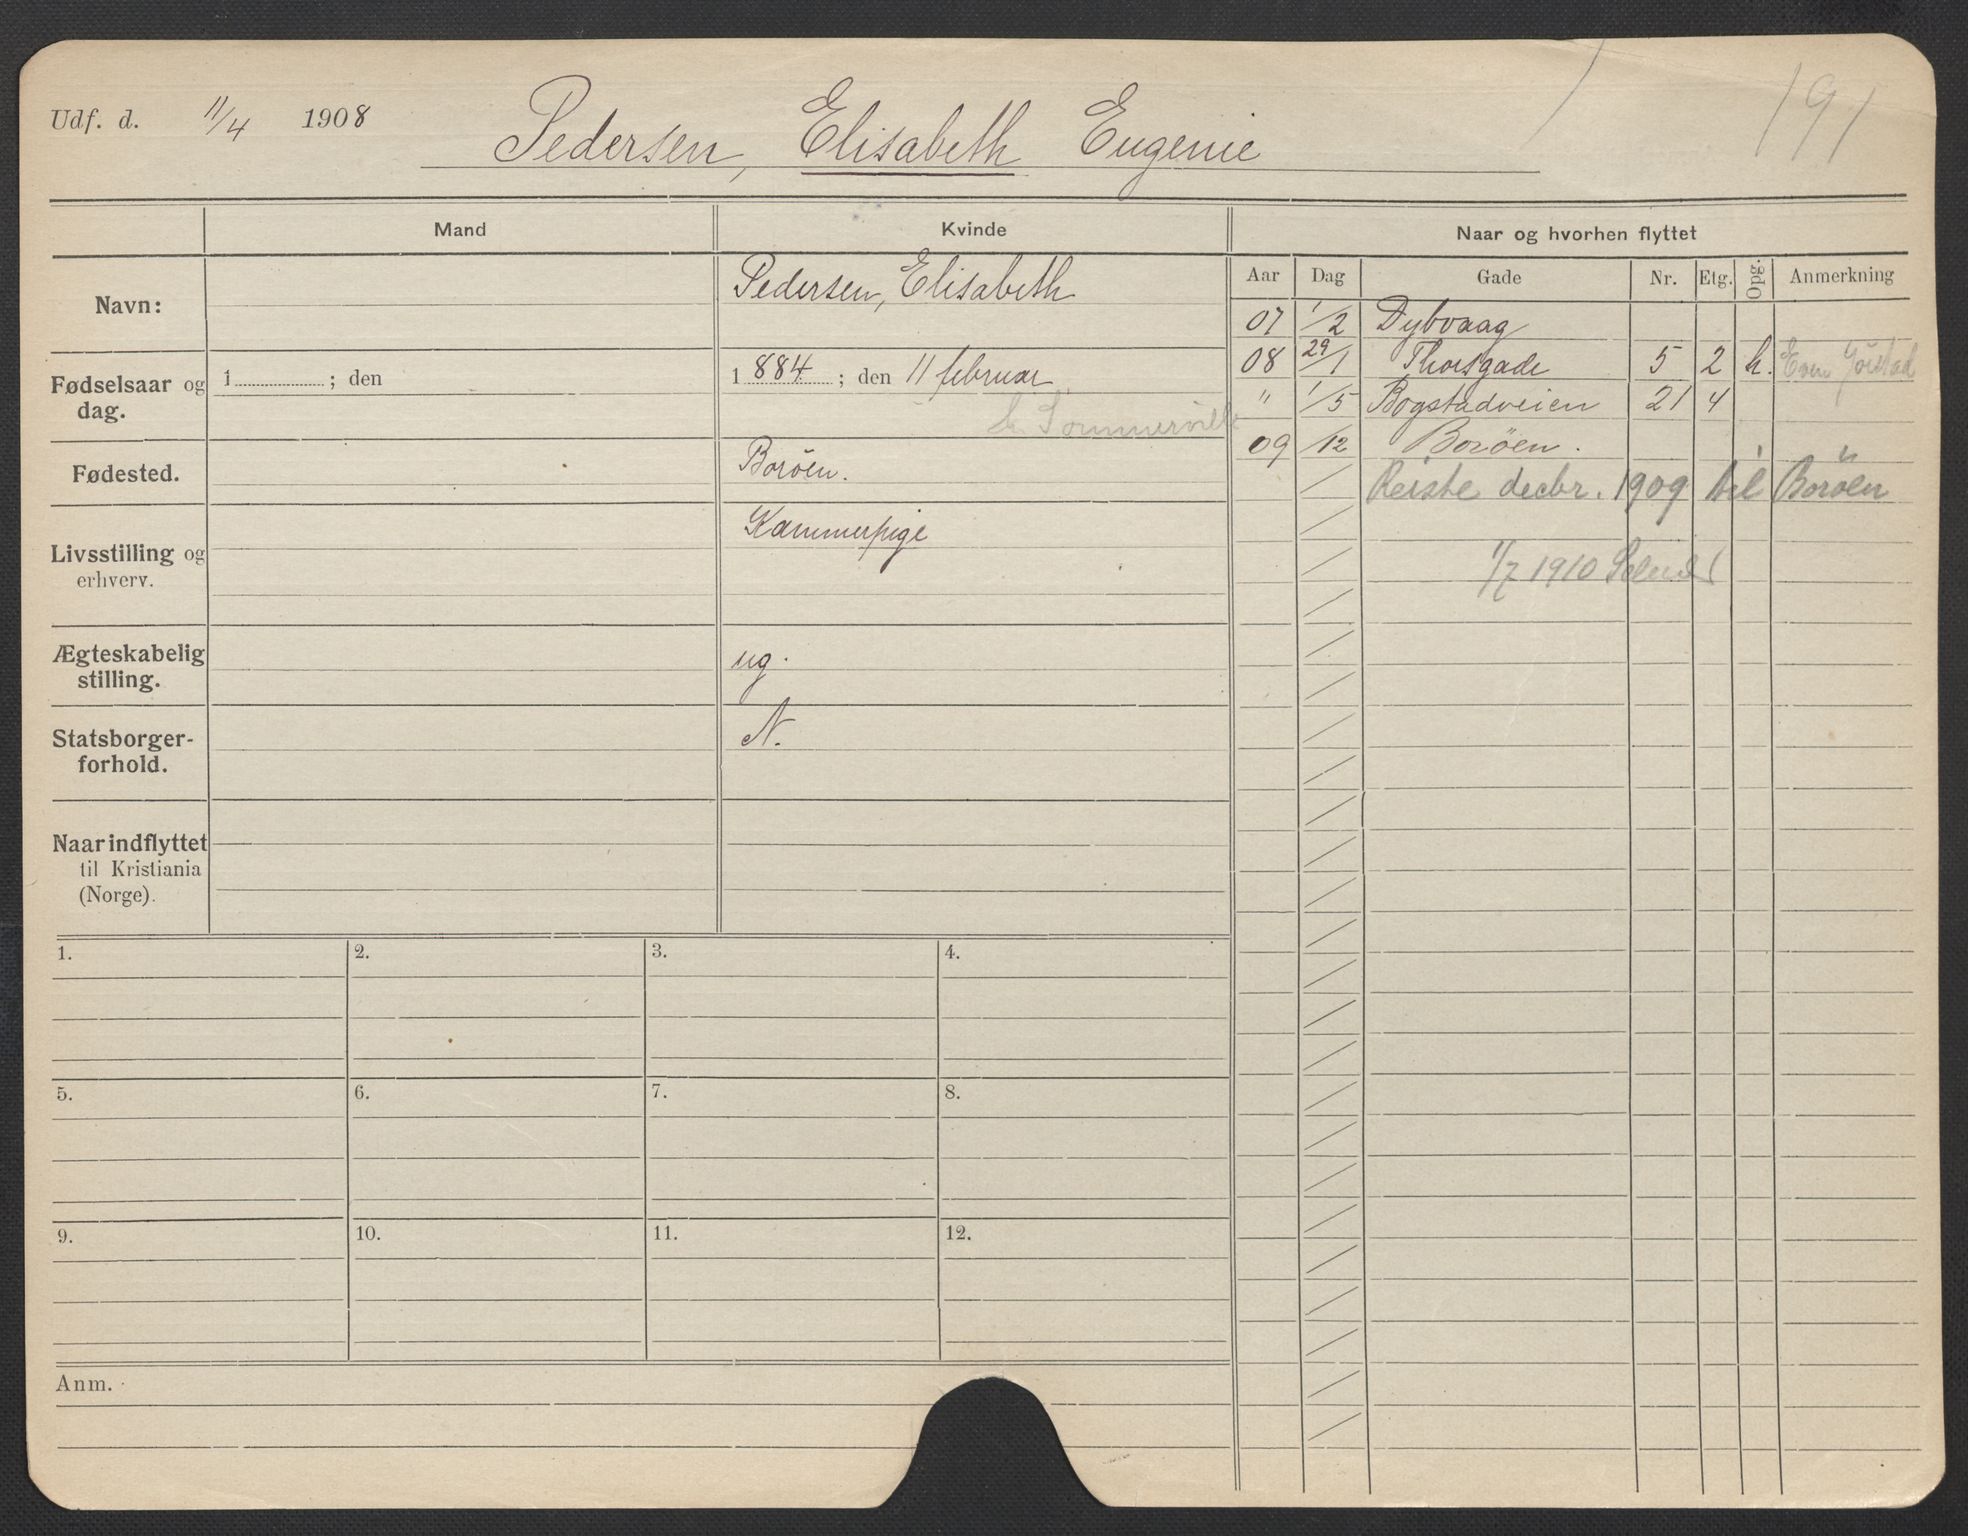 Udf. d. 11/4 1908 Pedersen, Elisabeth Eugenie 191
Mand Kvinde Naar og hvorhen flyttet
Aar Dag Gade Nr. Etg. Opg. Anmerkning
Navn: Pedersen, Elisabeth
07 1/2 Dybvaag
08 29/1 Thorsgade 5 2 h. Even
Fødselsaar og dag. 1 ; den 1884 ; den 11 februar
" 1/5 Bogstadveien 21 4
Sommerville
09 /12 Borøen.
Fødested. Borøen.
Reiste decbr. 1909 til Borøen
Livsstilling og erhverv. Kammerpige
1/7 1910
Ægteskabelig stilling. ug.
Statsborger-
forhold. N.
Naar indflyttet
til Kristiania
(Norge).
1. 2. 3. 4.
5. 6. 7. 8.
9. 10. 11. 12.
Anm.